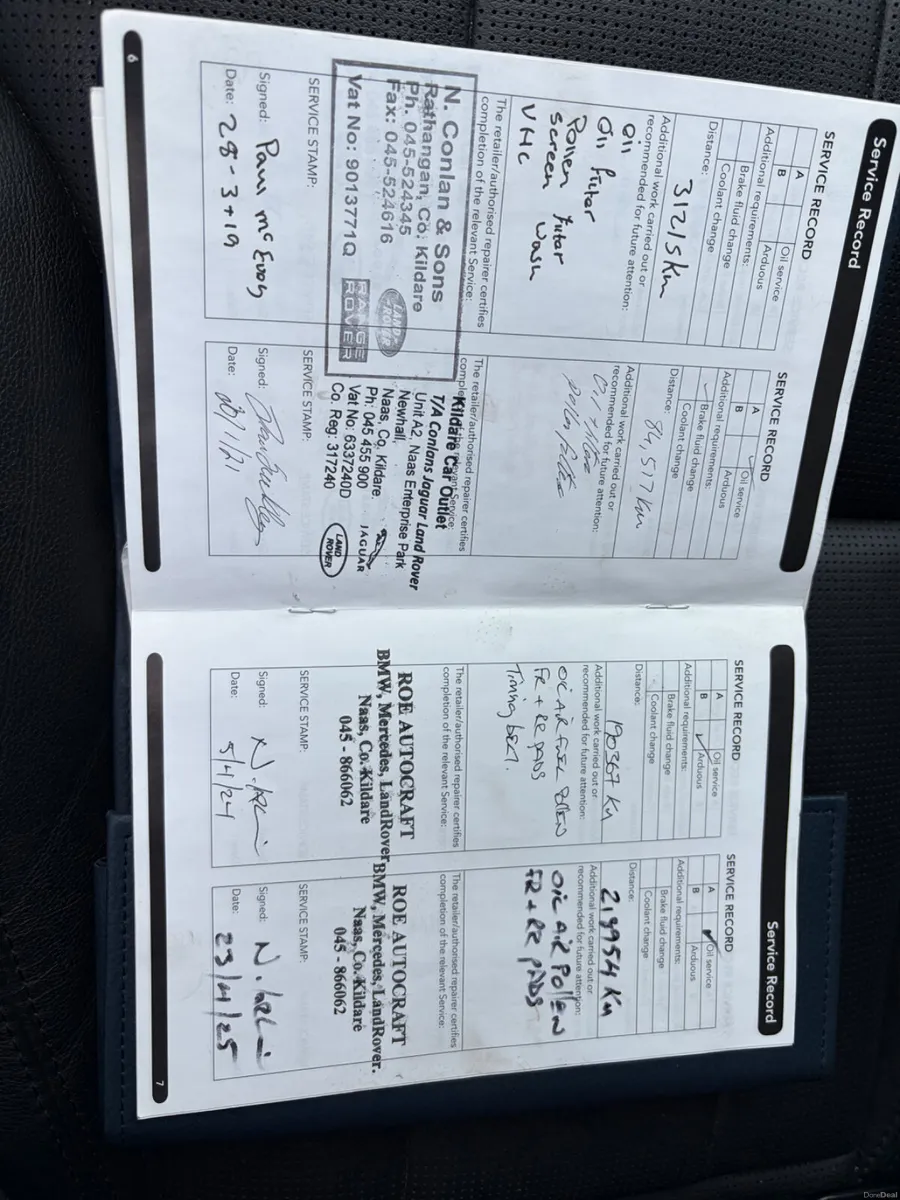 Service Record
SERVICE RECORD
A
Oil service
B
Arduous
Additional requirements:
Brake fluid change
Coolant change
Distance:
31215km
Additional work carried out or
recommended for future attention:
Oil
Oil Filtar
Pollen Filtar
Screen Wash
VHC
The retailer/authorised repairer certifies
completion of the relevant Service:
N. Conlan & Sons
Rathangan, Co. Kildare
Ph. 045-524345
Fax: 045-524616
Vat No: 9013771Q
LAND ROVER
RANGE ROVER
SERVICE STAMP:
Signed: Paul Mc Evoy
Date: 28-3-19
6
SERVICE RECORD
A
Oil service
B
Arduous
Additional requirements:
Brake fluid change
Coolant change
Distance:
84,517 km
Additional work carried out or
recommended for future attention:
Oil Filter
Pollen Filter
The retailer/authorised repairer certifies
completion of the relevant Service:
Kildare Car Outlet
T/A Conlans Jaguar Land Rover
Unit A2, Naas Enterprise Park
Newhall,
Naas, Co, Kildare.
Ph: 045 455 900
Vat No: 6337240D
Co. Reg: 317240
JAGUAR
LAND ROVER
SERVICE STAMP:
Signed:
Date: 20/1/21
Service Record
SERVICE RECORD
A
Oil service
B
Arduous
Additional requirements:
Brake fluid change
Coolant change
Distance:
190367 Km
Additional work carried out or
recommended for future attention:
OIL AIR FUEL POLLEN
FR + RR PADS
Timing belt.
The retailer/authorised repairer certifies
completion of the relevant Service:
ROE AUTOCRAFT
BMW, Mercedes, LandRover
Naas, Co. Kildare
045 - 866062
SERVICE STAMP:
Signed:
Date: 5/4/24
SERVICE RECORD
A
Oil service
B
Arduous
Additional requirements:
Brake fluid change
Coolant change
Distance:
219954 Km
Additional work carried out or
recommended for future attention:
OIL AIR POLLEN
FR + RR PADS
The retailer/authorised repairer certifies
completion of the relevant Service:
ROE AUTOCRAFT
BMW, Mercedes, LandRover.
Naas, Co. Kildare
045 - 866062
SERVICE STAMP:
Signed:
Date: 23/4/25
7
DoneDeal